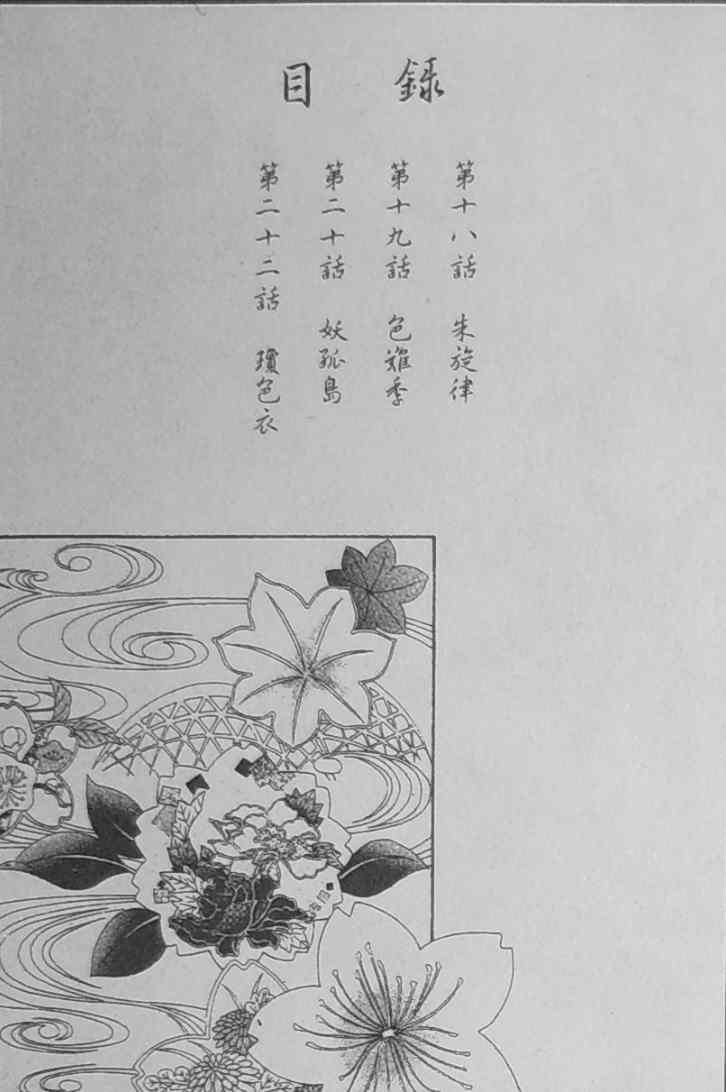 目 録
第十八話 朱旋律
第十九話
第二十話 妖孤島
第二十二話 瓊色衣